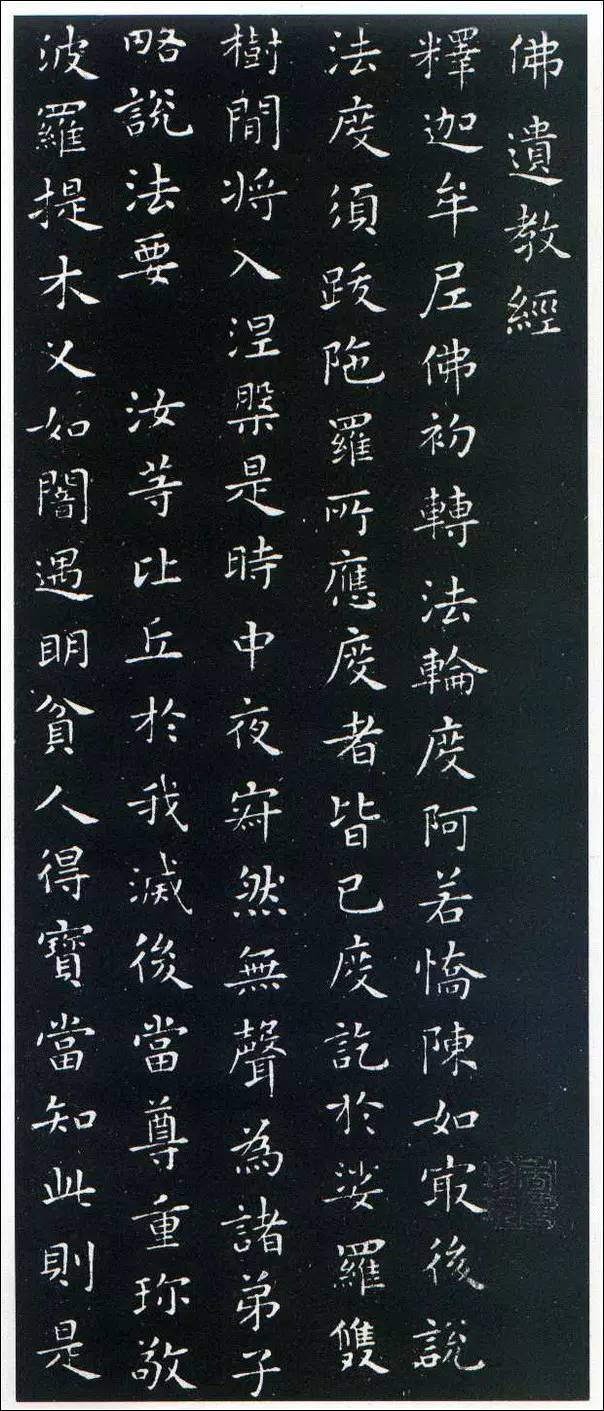 佛遺教經
釋迦牟尼佛初轉法輪度阿若憍陳如㝡後說
法度須跋陁羅所應度者皆已度訖於娑羅雙
樹間將入涅槃是時中夜寂然無聲為諸弟子
略說法要 汝等比丘於我滅後當尊重珎敬
波羅提木叉如闇遇明貧人得寶當知此則是